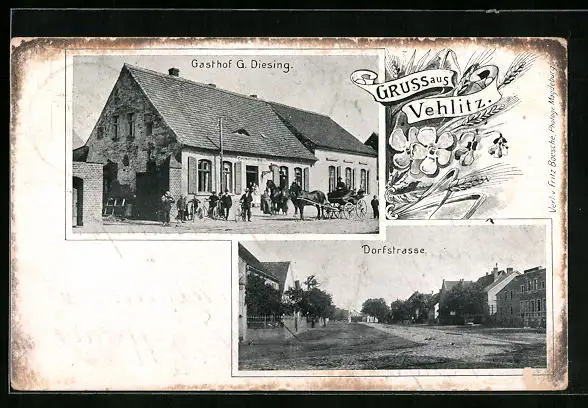 Gasthof G. Diesing.
GRUSS aus
Vehlitz.
Dorfstrasse.
Verl. v. Fritz Boesche, Photogr. Magdeburg.